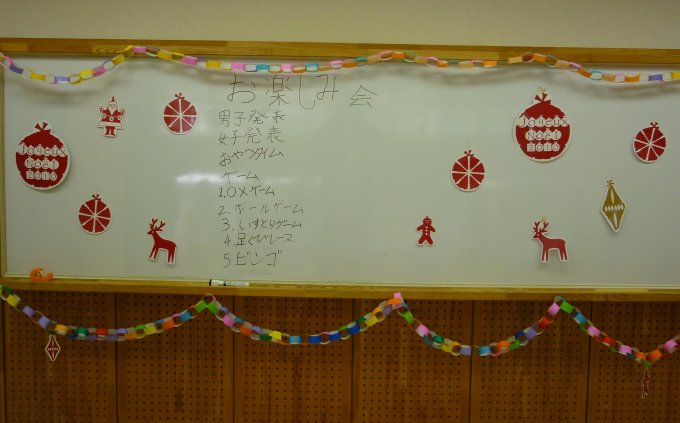 お楽しみ会
男子発表
女子発表
おやつタイム
ゲーム
1.○×ゲーム
2.ボールゲーム
3.いすとりゲーム
4.足くびレース
5.ビンゴ
Joyeux
Noël
2010
Joyeux
Noël
2010